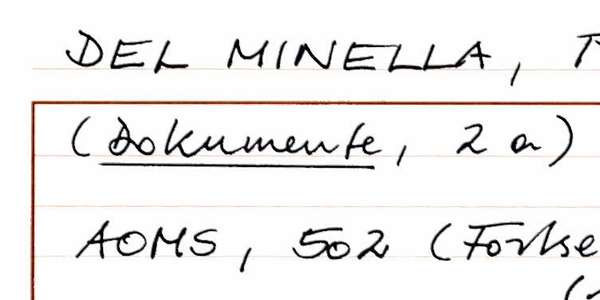 DEL MINELLA,
(Dokumente, 2 a)
AOMS, 502 (Fortse